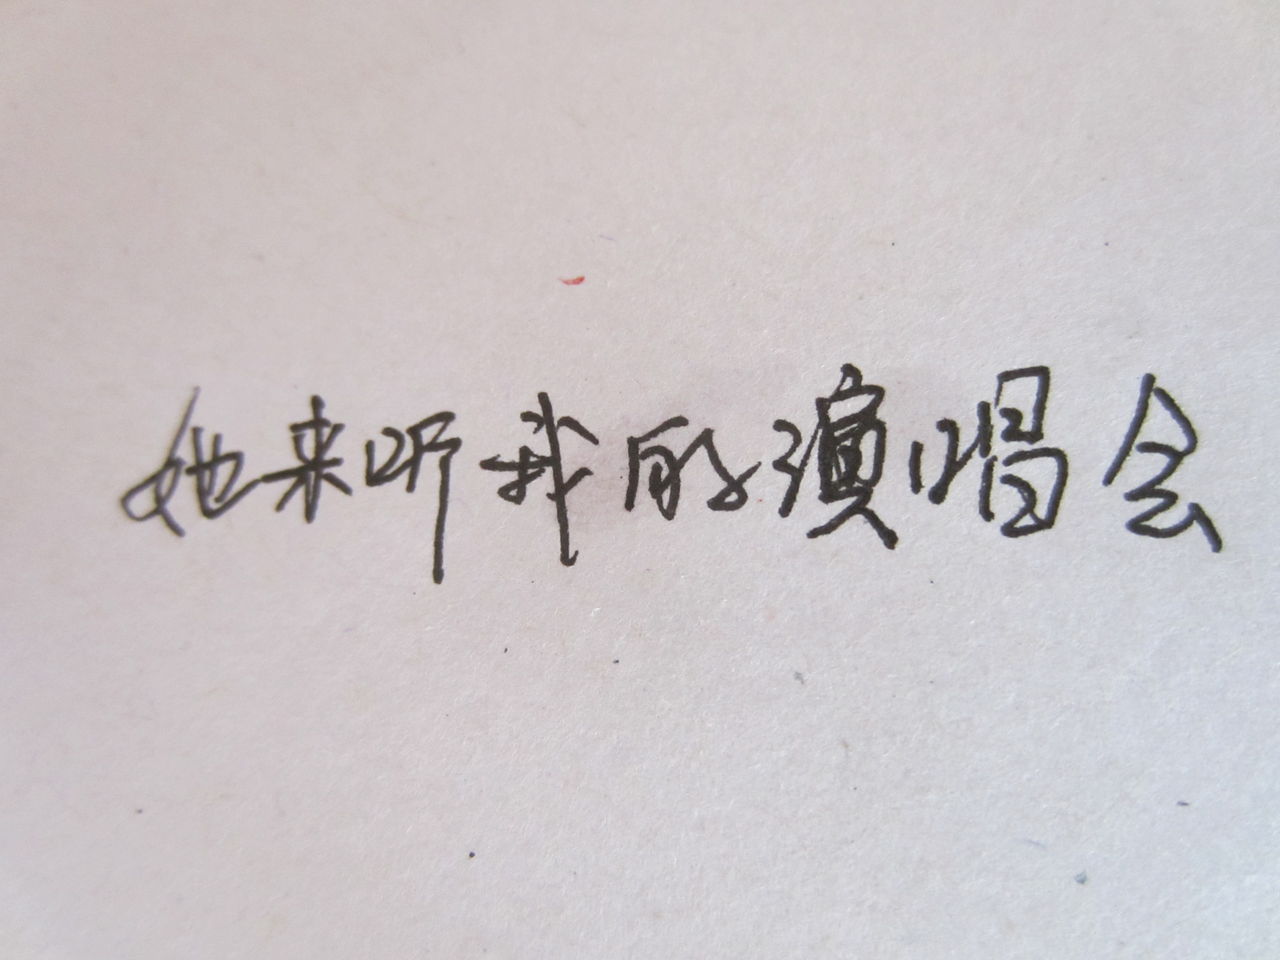 她来听我的演唱会